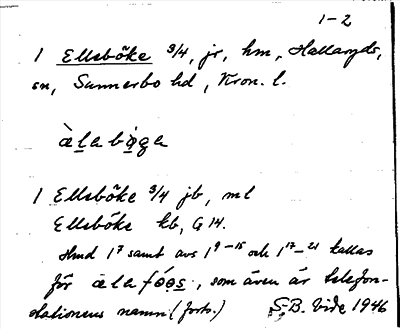 1-2
1 Ellsböke 3/4, jr, hm, Hallaryds
sn, Sunnerbo hd, Kron. l.
àlabǫga
1 Ellsböke 3/4 jb, ml
Ellsböke kb, G 14.
Hmd 1⁷ samt avs 1⁹⁻¹⁵ och 1¹⁷⁻²¹ kallas
för àlafóǫs, som även är telefon-
stationens namn (forts.) S.B. Vide 1946